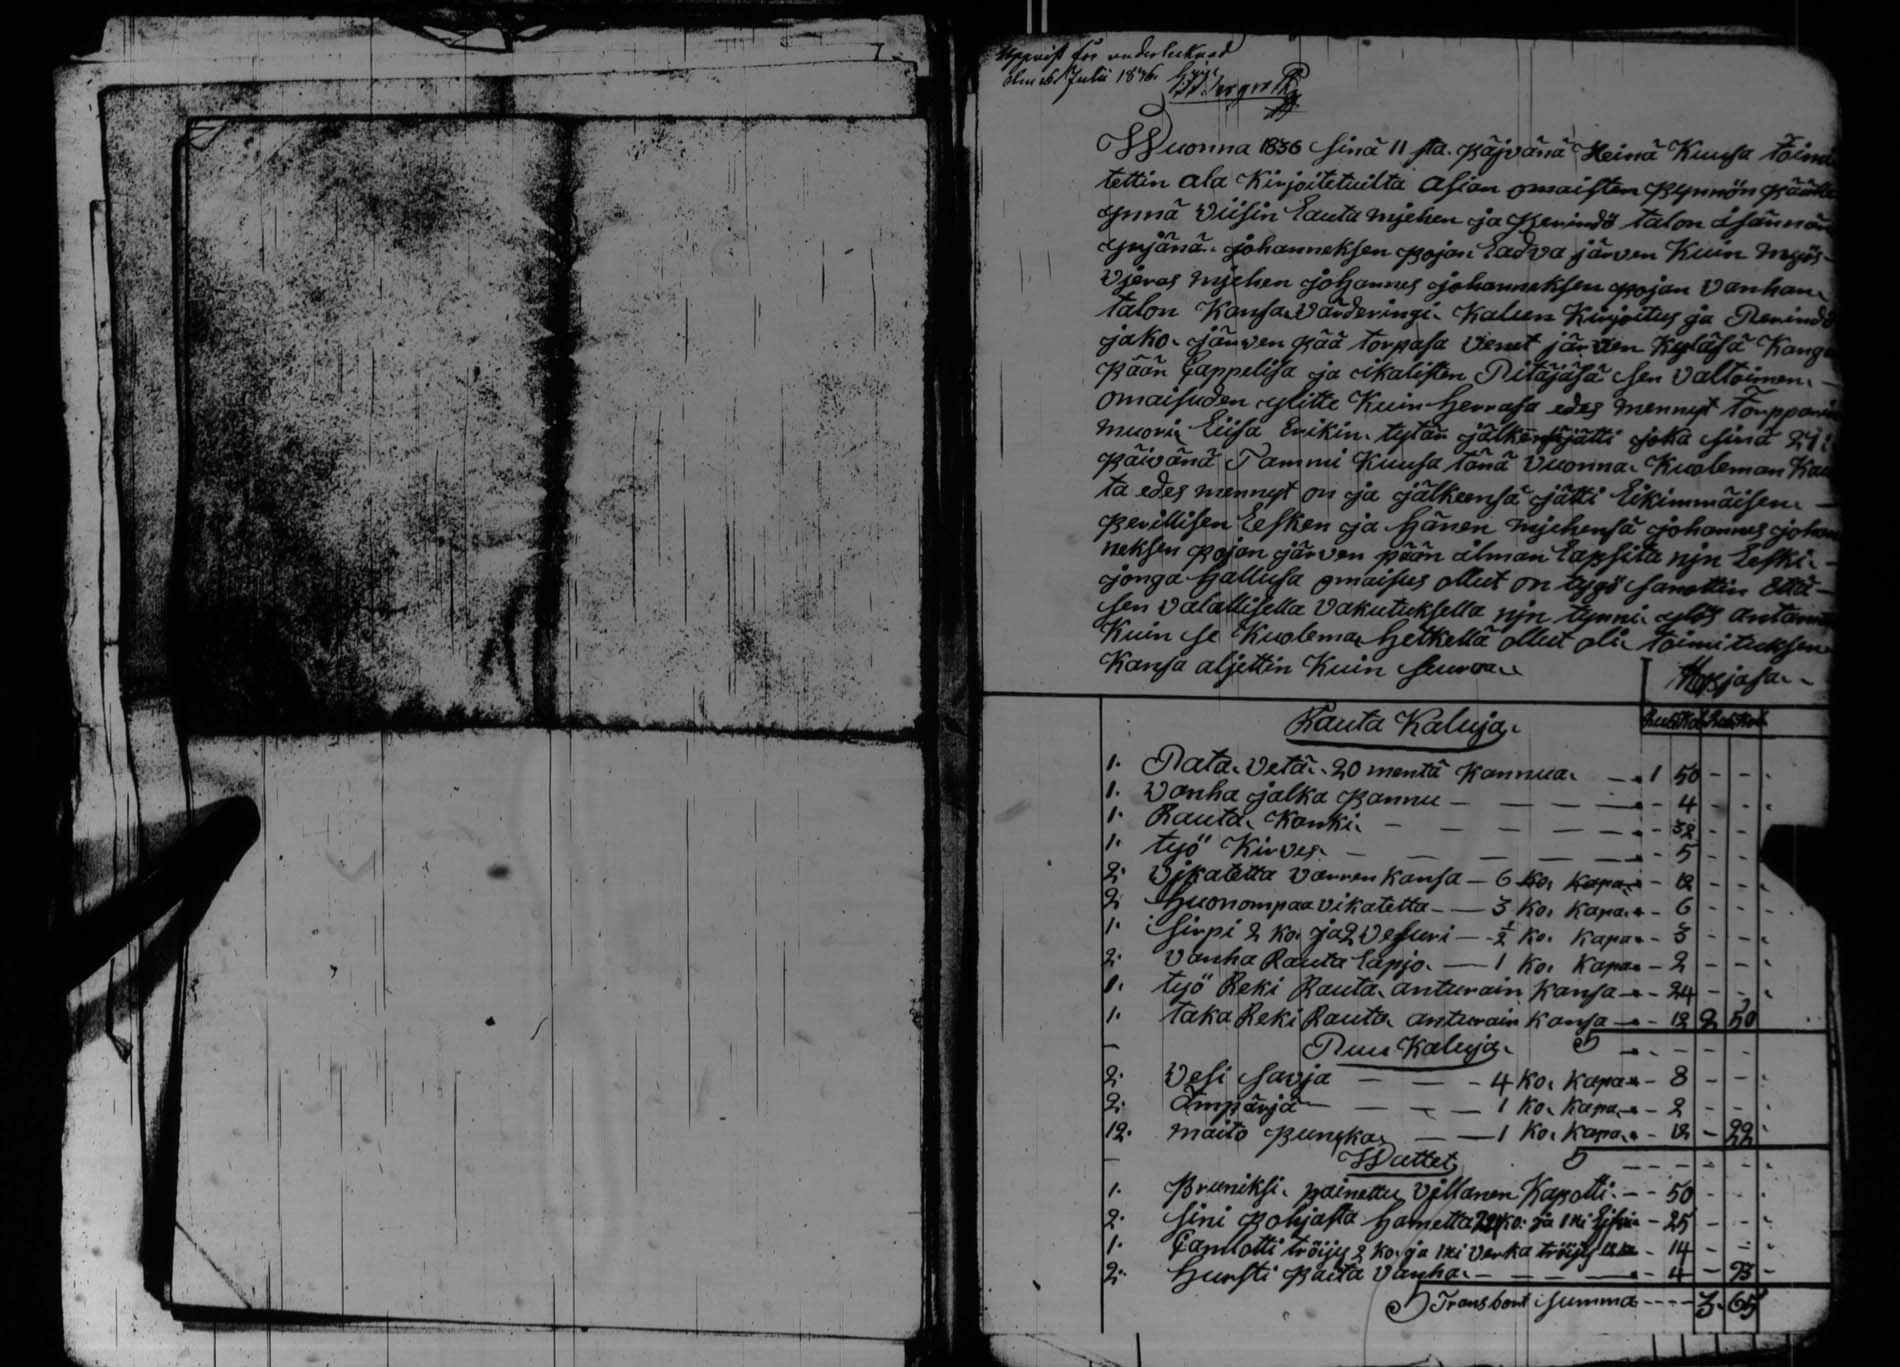 7
Wuonna 1836 sinä 11 sta. päjvänä Heinä Kuusa toimi
tettin ala Kirjoitetuilta asian omaisten pynnön päälle
ynnä viisin Lauta mjehen ja Perindö talon isännän
yrjänä johanneksen pojan Ladva järven Kuin myös
vjeras mjehen johannes johanneksen pojan vanhan
talon Kansa. värderingi Kalun Kirjoitus ja Perindö
jako järven pää torpasa venet järven Kyläsä Kanga
pään Cappelisa ja ikalisten Pitäjäsä sen valtoimen
omaisuden ylitte Kuin herrasa edes mennyt torpparin
muori Liisa Erikin tytär jälkensäjätti joka sinä 21
päivänä Tammi Kuusa tänä vuonna Kuoleman Kau
ta edes mennyt on ja jälkeensä jätti Eikimmäisen
perillisen Lesken ja hänen mjehensä johannes johan
neksen pojan järven pään ilman lapsita njn Leski
jonga hallusa omaisus ollut on tygö sanottin että
sen valallisella vakutuksella njn tynni ylös antaman
Kuin se Kuolema hetkellä ollut oli toimituksen
Kansa aljettin Kuin seurva
Hopjasa
Rauta Kaluja
1. Pata vetä 20 mentä Kannua 1 50
1. vanha jalka pannu 4
1. Rauta Kanki 32
1. työ Kirves 5
2. vikatetta varren kansa 6 ko. kapa 12
2 huonompaa vikatetta 3 Ko. Kapa 6
1. sirpi 2 ko. ja 2 vesuri ½ ko. Kapa 3
2. vanha Rauta lapjo 1 Ko. Kapa 2
1. työ Reki Rauta anturain kansa 24
1. taka Reki Rauta anturain Kansa 12 2 50
Puu Kaluja
2. vesi savja 4 Ko. Kapa 8
2. ämpärjä 1 Ko. Kapa 2
12. maito punka 1 Ko. Kapa 12 22
Wattet
1. Pruniksi painettu villanen Kapotti 50
2. sini pohjasta hametta ko. ja 1 ki 25
1. Camlotti tröijy 2 ko. ja 1 ki verka tröijy 14
2. hursti paita vanha 4 93
Transport summa 3 65